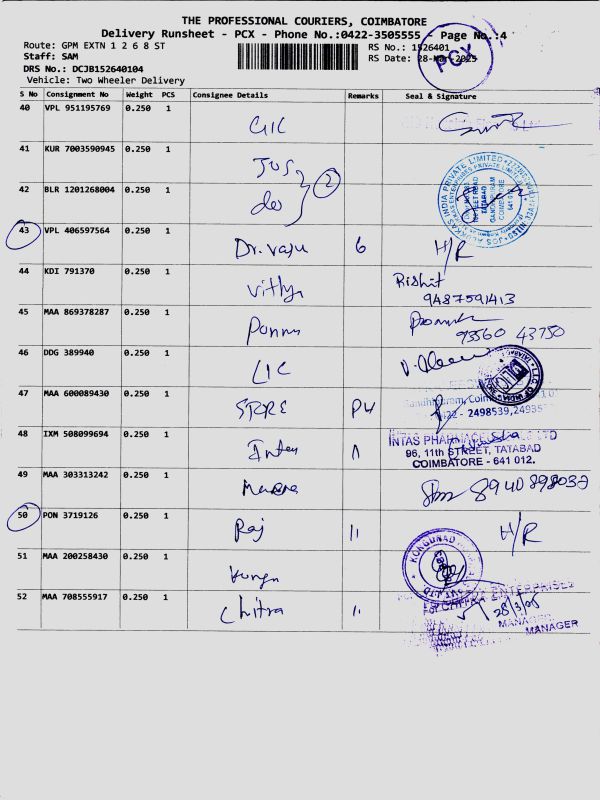 THE PROFESSIONAL COURIERS, COIMBATORE
Delivery Runsheet - PCX - Phone No.:0422-3505555 - Page No.:4
Route: GPM EXTN 1 2 6 8 ST
RS No.: 1526401
Staff: SAM
RS Date: 28-Mar-2025
PCX
DRS No.: DCJB152640104
Vehicle: Two Wheeler Delivery
S No Consignment No Weight PCS Consignee Details Remarks Seal & Signature
40 VPL 951195769 0.250 1
41 KUR 7003590945 0.250 1 Jos
42 BLR 1201268004 0.250 1 do 2
43 VPL 406597564 0.250 1 Dr. Vasu 6 H/R
44 KDI 791370 0.250 1 Vithya Rishit
9487591413
45 MAA 869378287 0.250 1 Ponnu
93560 43750
46 DDG 389940 0.250 1 LIC
47 MAA 600089430 0.250 1 STORE PW
48 IXM 508099694 0.250 1 Intas
INTAS PHARMACEUTICALS LTD
96, 11th STREET, TATABAD
COIMBATORE - 641 012.
49 MAA 303313242 0.250 1
50 PON 3719126 0.250 1 Raj 11 H/R
51 MAA 200258430 0.250 1
52 MAA 708555917 0.250 1 Chitra 11
For CHITRA ENTERPRISES
28/3/25
MANAGER
MANAGER